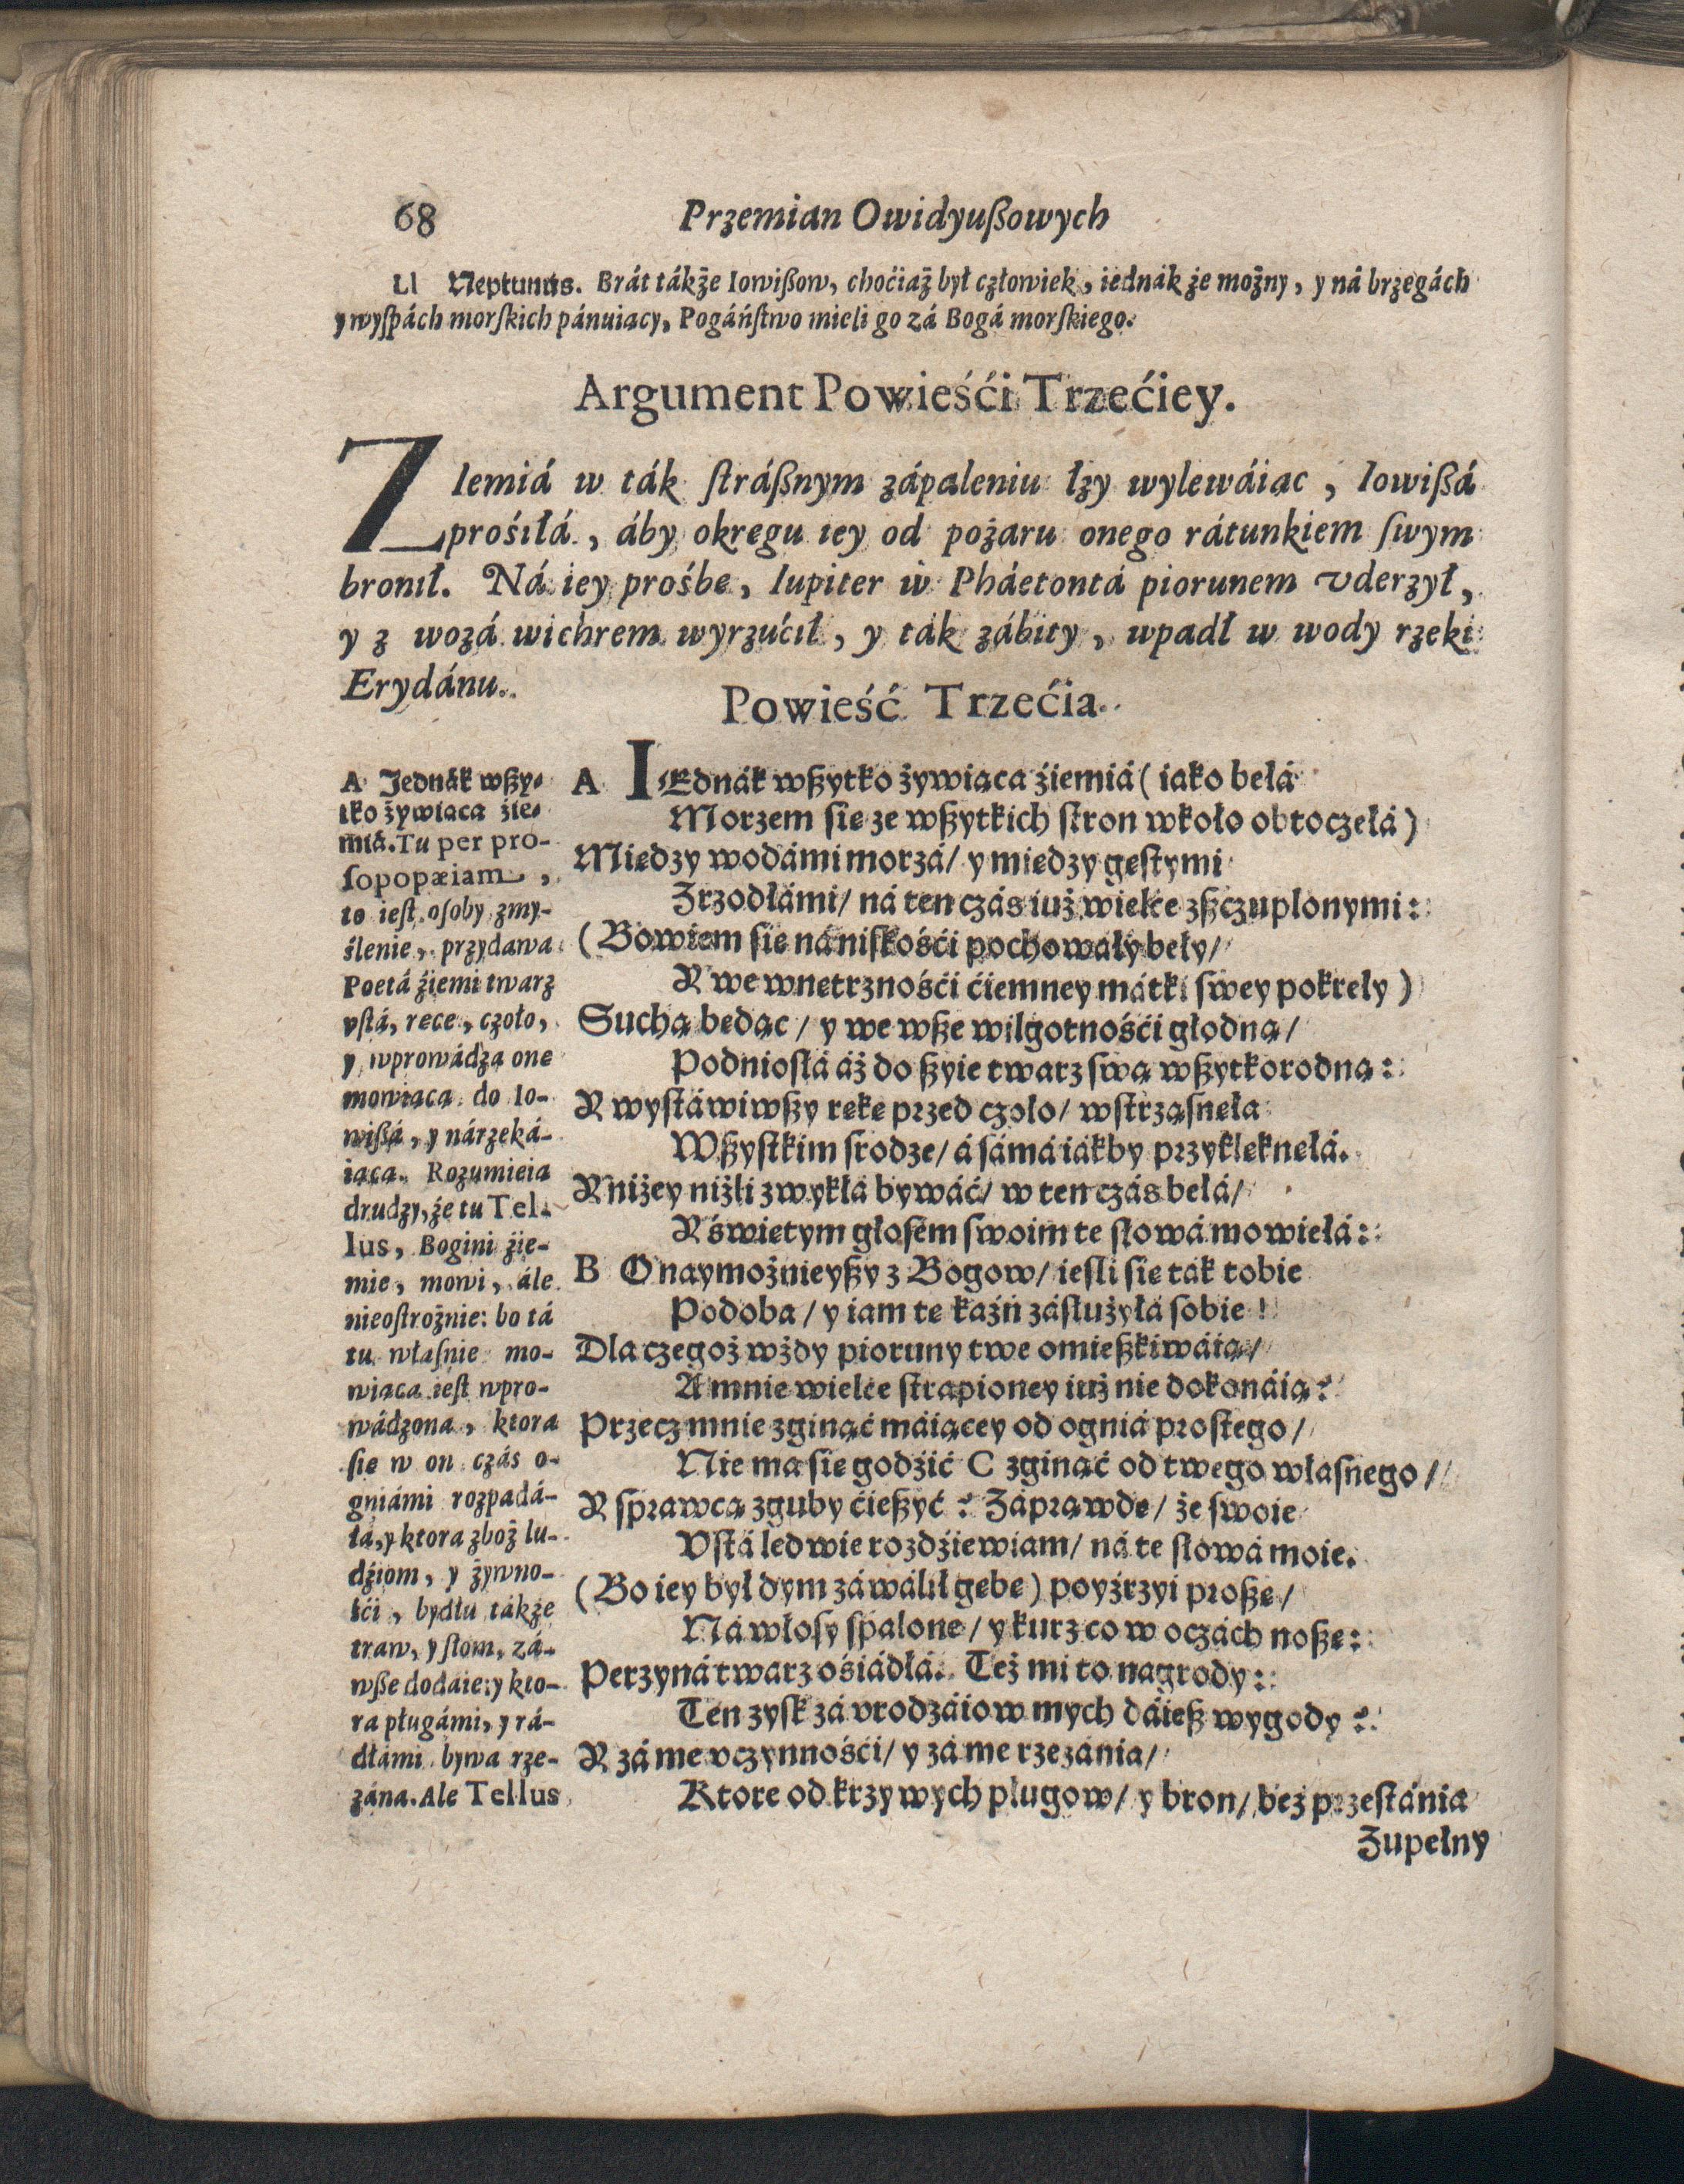 68 Przemian Owidyußowych
Ll Neptunus. Brát tákże Iowißow, choćiaż był człowiek, iednák że możny, y ná brzegách
y wyſpách morſkich pánuiacy, Pogáńſtwo mieli go zá Bogá morſkiego.
Argument Powieśći Trzećiey.
ZIemiá w ták ſtráßnym zápaleniu łzy wylewáiąc, Iowißá
prośiłá, áby okręgu iey od pożaru onego rátunkiem ſwym
bronił. Ná iey prośbę, Iupiter w Pháetontá piorunem vderzył,
y z wozá wichrem wyrzućił, y ták zábity, wpadł w wody rzeki
Erydánu.
Powieść Trzećia.
A Jednák wßy-
tko żywiąca źie-
miá. Tu per pro-
ſopopæiam,
to ieſt oſoby zmy-
ślenie, przydawa
Poetá źiemi twarz
vſtá, ręce, czoło,
y wprowádza onę
mowiącą do Io-
wißá, y nárzeká-
iącą. Rozumieią
drudzy, że tu Tel-
lus, Bogini źie-
mie, mowi, ále
nieoſtrożnie: bo tá
tu właſnie mo-
wiąca ieſt wpro-
wádzona, ktora
ſię w on czás o-
gniámi rozpadá-
łá, y ktora zboż lu-
dźiom, y żywno-
śći, bydłu tákże
traw, y ſłom, zá-
wße dodáie: y kto-
ra pługámi, y rá-
dłámi bywa rze-
zána. Ale Tellus
A IEdnák wßytko żywiąca źiemiá (iáko bełá
Morzem ſię ze wßytkich ſtron wkoło obtoczełá)
Między wodámi morzá/ y między gęſtymi
Zrzodłámi/ ná ten czás iuż wielce zßczuplonymi:
(Bowiem ſię ná niſkośći pochowáły beły/
Y we wnętrznośći ćiemney mátki ſwey pokreły)
Suchą będąc/ y we wße wilgotnośći głodną/
Podnioſłá áż do ßyie twarz ſwą wßytkorodną:
Y wyſtáwiwßy rękę przed czoło/ wſtrząſnęła
Wßyſtkim ſrodze/ á ſámá iákby przyklęknęłá.
Y niżey niżli zwykłá bywáć/ w ten czás bełá/
Y świętym głoſem ſwoim te ſłowá mowiełá:
B O naymożnieyßy z Bogow/ ieſli ſię ták tobie
Podoba/ y iam tę kaźń záſłużyłá ſobie!
Dla czegoż wżdy pioruny twe omießkiwáią/
A mnie wielce ſtrapioney iuż nie dokonáią?
Przecz mnie zginąć máiącey od ogniá proſtego/
Nie ma ſię godźić C zginąć od twego właſnego/
Y ſprawcą zguby ćießyć? Záprawdę/ że ſwoie
Vſtá ledwie rozdźiewiam/ ná te ſłowá moie.
(Bo iey był dym záwálił gębę) poyźrzyi proßę/
Ná włoſy ſpalone/ y kurz co w oczách noßę:
Perzyná twarz ośiádłá. Też mi to nagrody:
Ten zyſk zá vrodzáiow mych dáieß wygody?
Y zá me vczynnośći/ y zá me rzezánia/
Ktore od krzywych pługow/ y bron/ bez przeſtánia
Zupełny